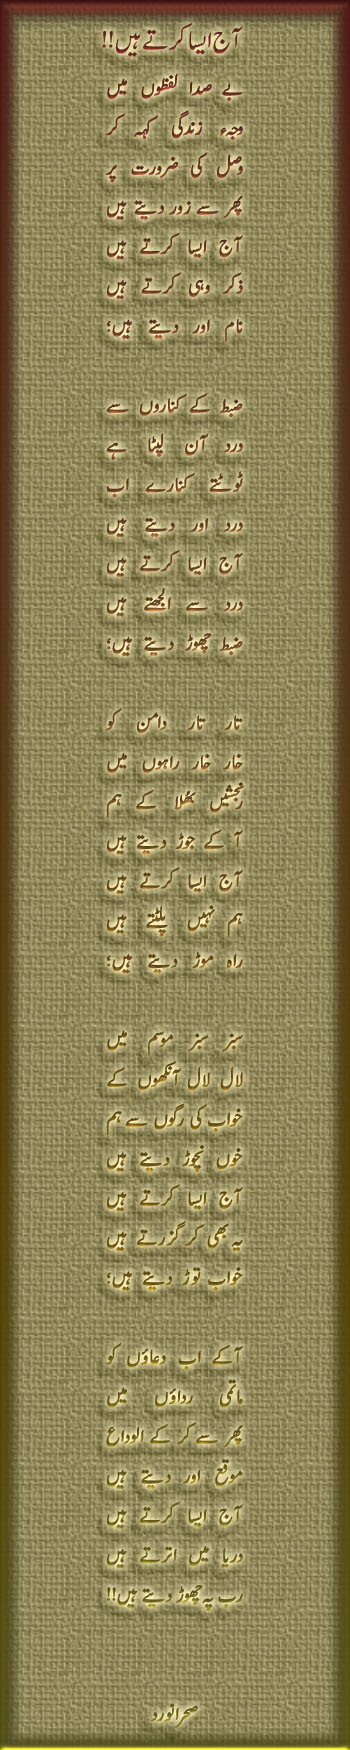 آج ایسا کرتے ہیں!!
بے صدا لفظوں میں
وجہء زندگی کہہ کر
وصل کی ضرورت پر
پھر سے زور دیتے ہیں
آج ایسا کرتے ہیں
ذکر وہی کرتے ہیں
نام اور دیتے ہیں؛
ضبط کے کناروں سے
درد آن لپٹا ہے
ٹوٹتے کنارے اب
درد اور دیتے ہیں
آج ایسا کرتے ہیں
درد سے الجھتے ہیں
ضبط چھوڑ دیتے ہیں؛
تار تار دامن کو
خار خار راہوں میں
رنجشیں بھلا کے ہم
آ کے جوڑ دیتے ہیں
آج ایسا کرتے ہیں
ہم نہیں پلٹتے ہیں
راہ موڑ دیتے ہیں؛
سبز سبز موسم میں
لال لال آنکھوں کے
خواب کی رگوں سے ہم
خوں نچوڑ دیتے ہیں
آج ایسا کرتے ہیں
یہ بھی کر گزرتے ہیں
خواب توڑ دیتے ہیں؛
آکے اب دعاؤں کو
ماتمی رداؤں میں
پھر سے کر کے الوداع
موقع اور دیتے ہیں
آج ایسا کرتے ہیں
دریا میں اترتے ہیں
رب پہ چھوڑ دیتے ہیں!!
صحرانورد